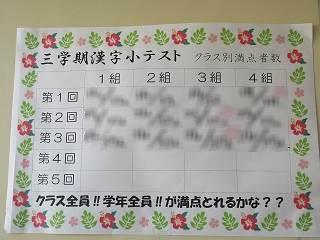 三学期漢字小テスト クラス別満点者数
1組 2組 3組 4組
第1回
第2回
第3回
第4回
第5回
クラス全員!!学年全員!!が満点とれるかな??